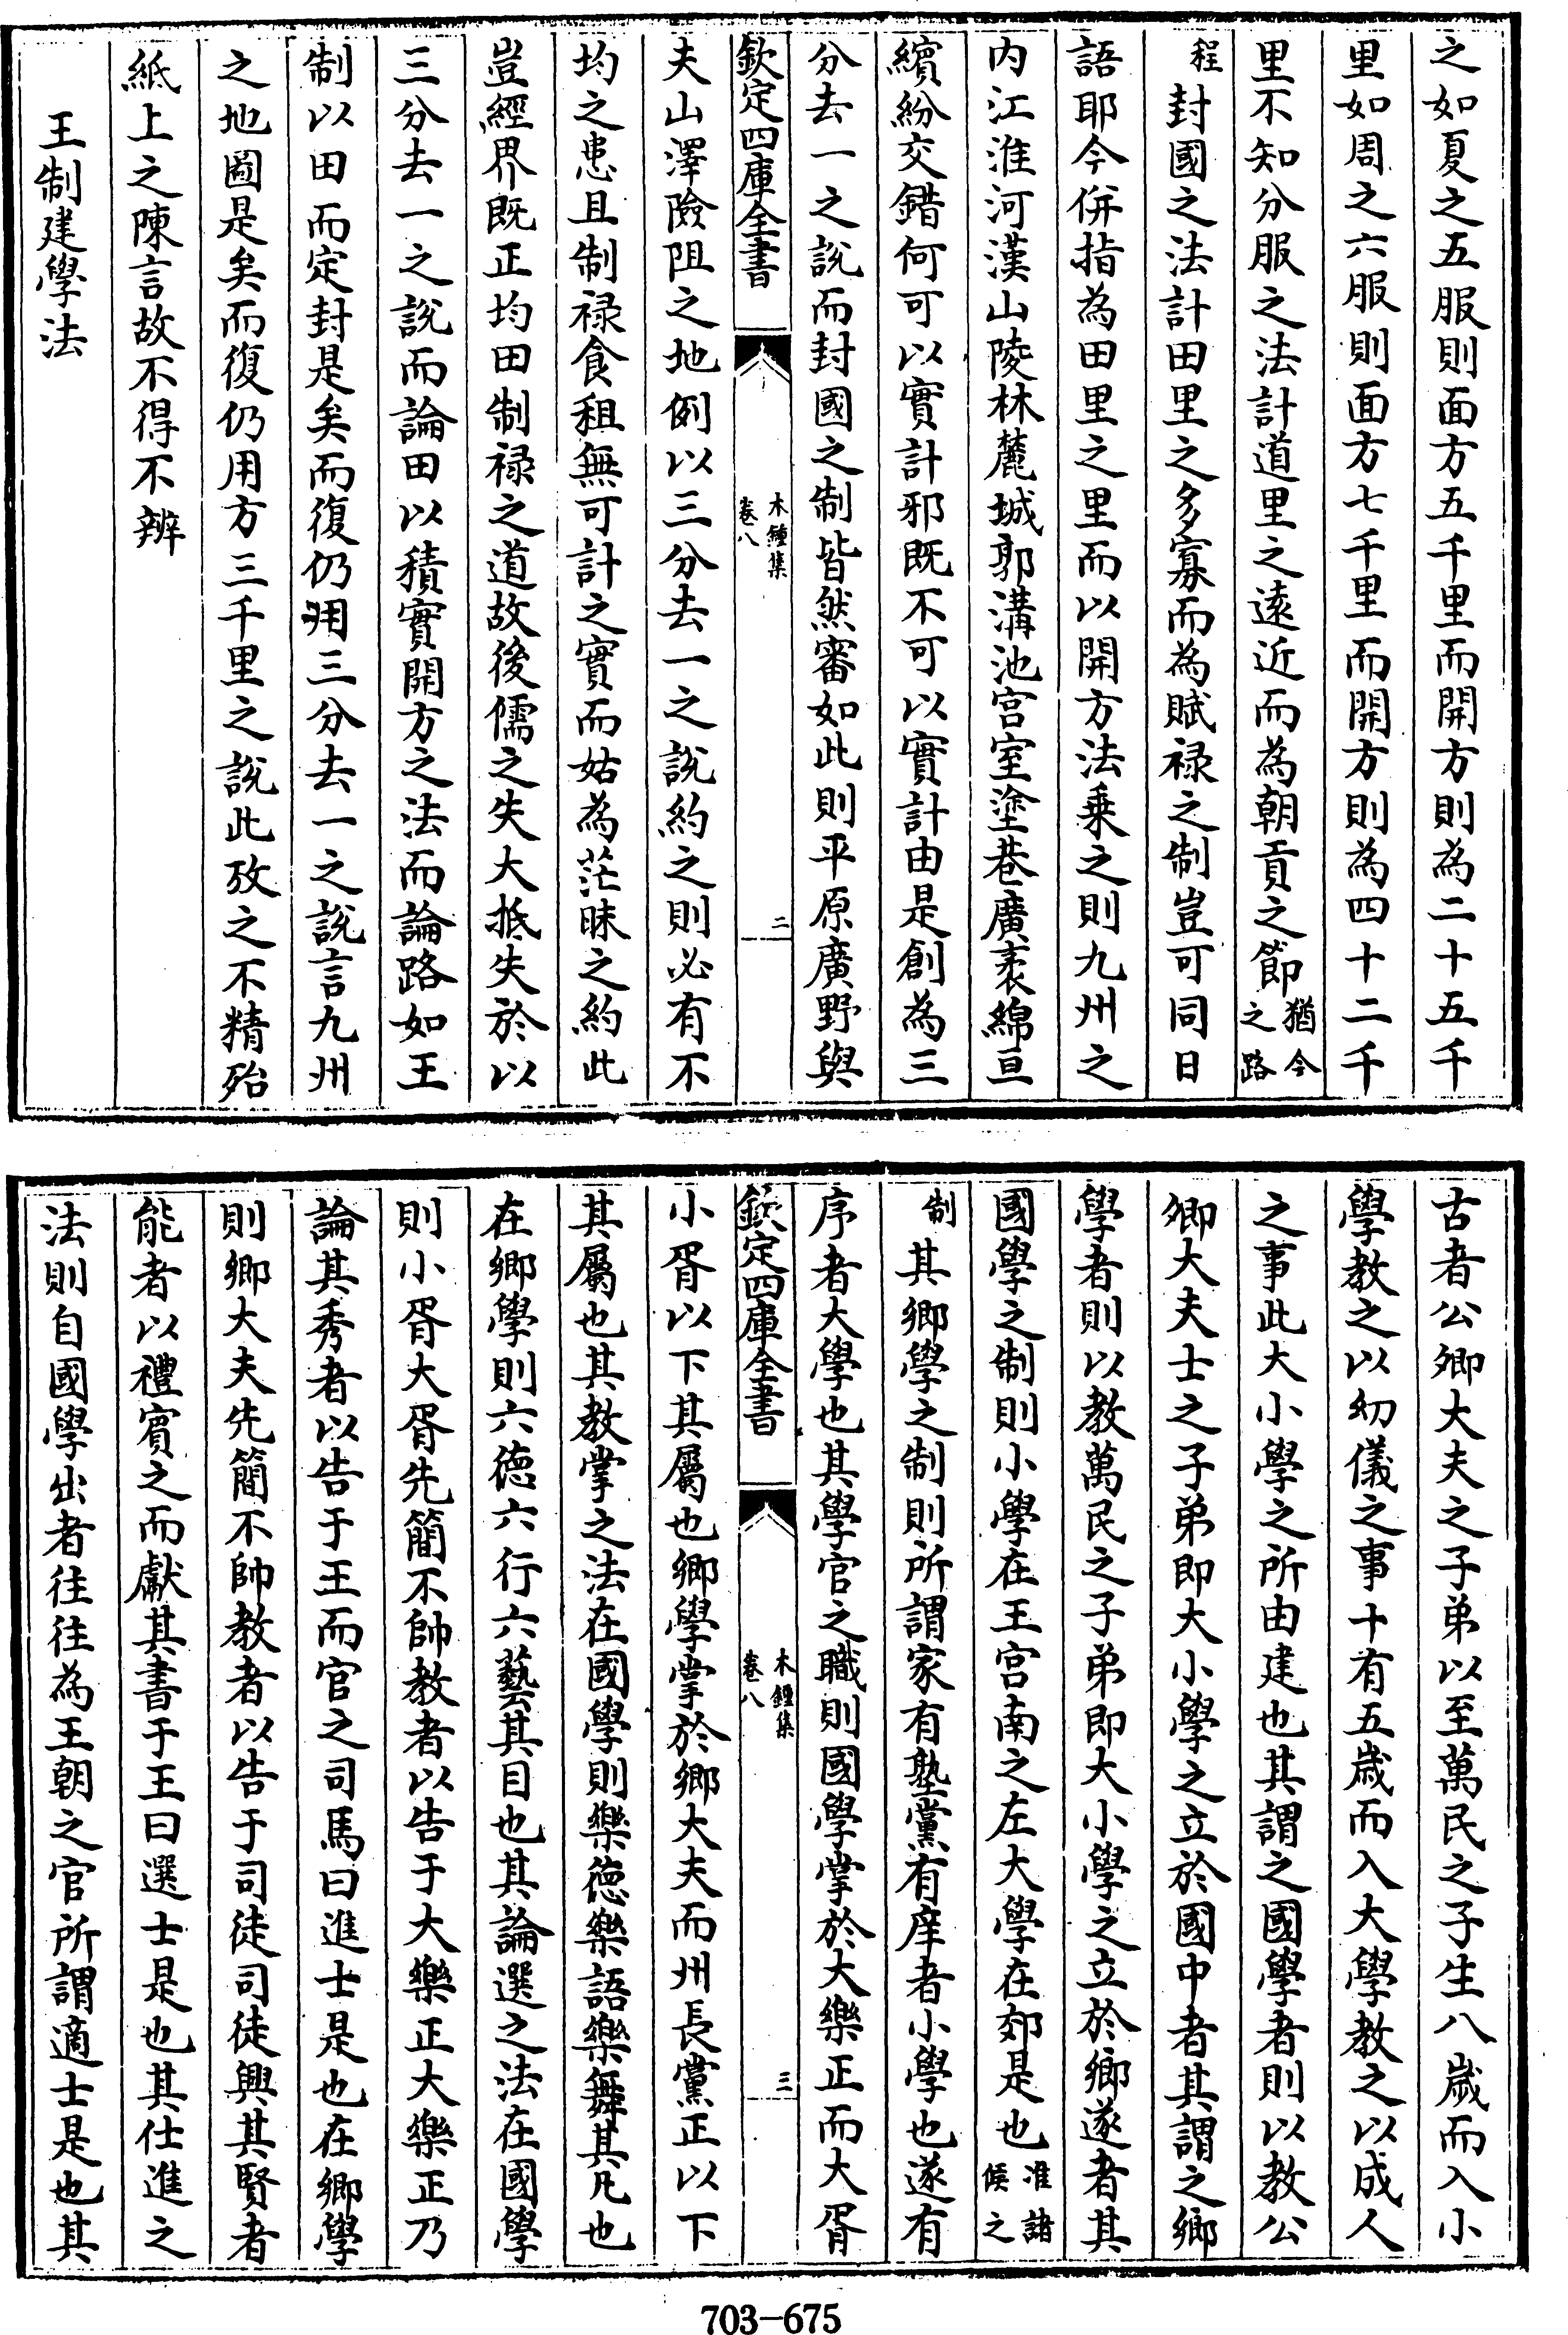 之如夏之五服則面方五千里而開方則為二十五千
里如周之六服則面方七千里而開方則為四十二千
里不知分服之法計道里之遠近而為朝貢之節猶今之路
程封國之法計田里之多寡而為賦禄之制豈可同日
語耶今併指為田里之里而以開方法乗之則九州之
内江淮河漢山陵林麓城郭溝池宫室塗巷廣袤綿亘
繽紛交錯何可以實計邪既不可以實計由是創為三
分去一之説而封國之制皆然審如此則平原廣野與
欽定四庫全書
木鍾集
卷八
二
夫山澤險阻之地例以三分去一之説約之則必有不
均之患且制禄食租無可計之實而姑為茫昧之約此
豈經界既正均田制禄之道故後儒之失大抵失於以
三分去一之説而論田以積實開方之法而論路如王
制以田而定封是矣而復仍用三分去一之説言九州
之地圖是矣而復仍用方三千里之説此攷之不精殆
紙上之陳言故不得不辨
王制建學法
古者公卿大夫之子弟以至萬民之子生八嵗而入小
學教之以幼儀之事十有五嵗而入大學教之以成人
之事此大小學之所由建也其謂之國學者則以教公
卿大夫士之子弟即大小學之立於國中者其謂之鄉
學者則以教萬民之子弟即大小學之立於鄉遂者其
國學之制則小學在王宫南之左大學在郊是也准諸候之
制其鄉學之制則所謂家有塾黨有庠者小學也遂有
序者大學也其學官之職則國學掌於大樂正而大胥
欽定四庫全書
木鍾集
卷八
三
小胥以下其屬也鄉學掌於鄉大夫而州長黨正以下
其屬也其教掌之法在國學則樂徳樂語樂舞其凡也
在鄉學則六徳六行六藝其目也其論選之法在國學
則小胥大胥先簡不帥教者以告于大樂正大樂正乃
論其秀者以告于王而官之司馬曰進士是也在鄉學
則鄉大夫先簡不帥教者以告于司徒司徒興其賢者
能者以禮賓之而獻其書于王曰選士是也其仕進之
法則自國學出者往往為王朝之官所謂適士是也其
703-675